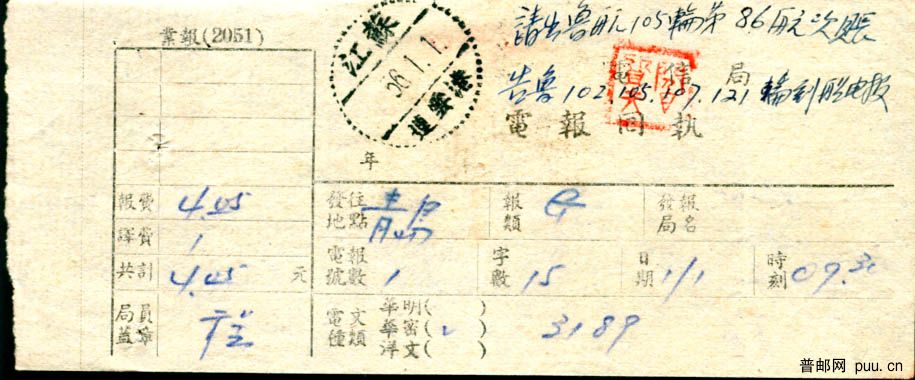 請告魯航105輪第86航次賬
業報(2051)
江蘇
56.1.1.
連雲港
電信局
告魯102.105.107.121輪到船电报
電報回執
年
報費 4.05
發往地點 青島
報類
發報局名
譯費 1
共計 4.05 元
電報號數 1
字數 15
日期 1/1
時刻 09.30
局員蓋章
電文種類
華明( )
華密(✓)
洋文( )
3189
普邮网 puu.cn